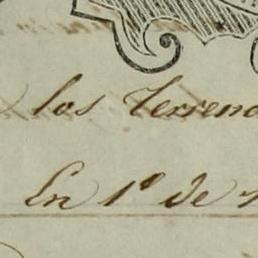 los Terreno
En 1º de